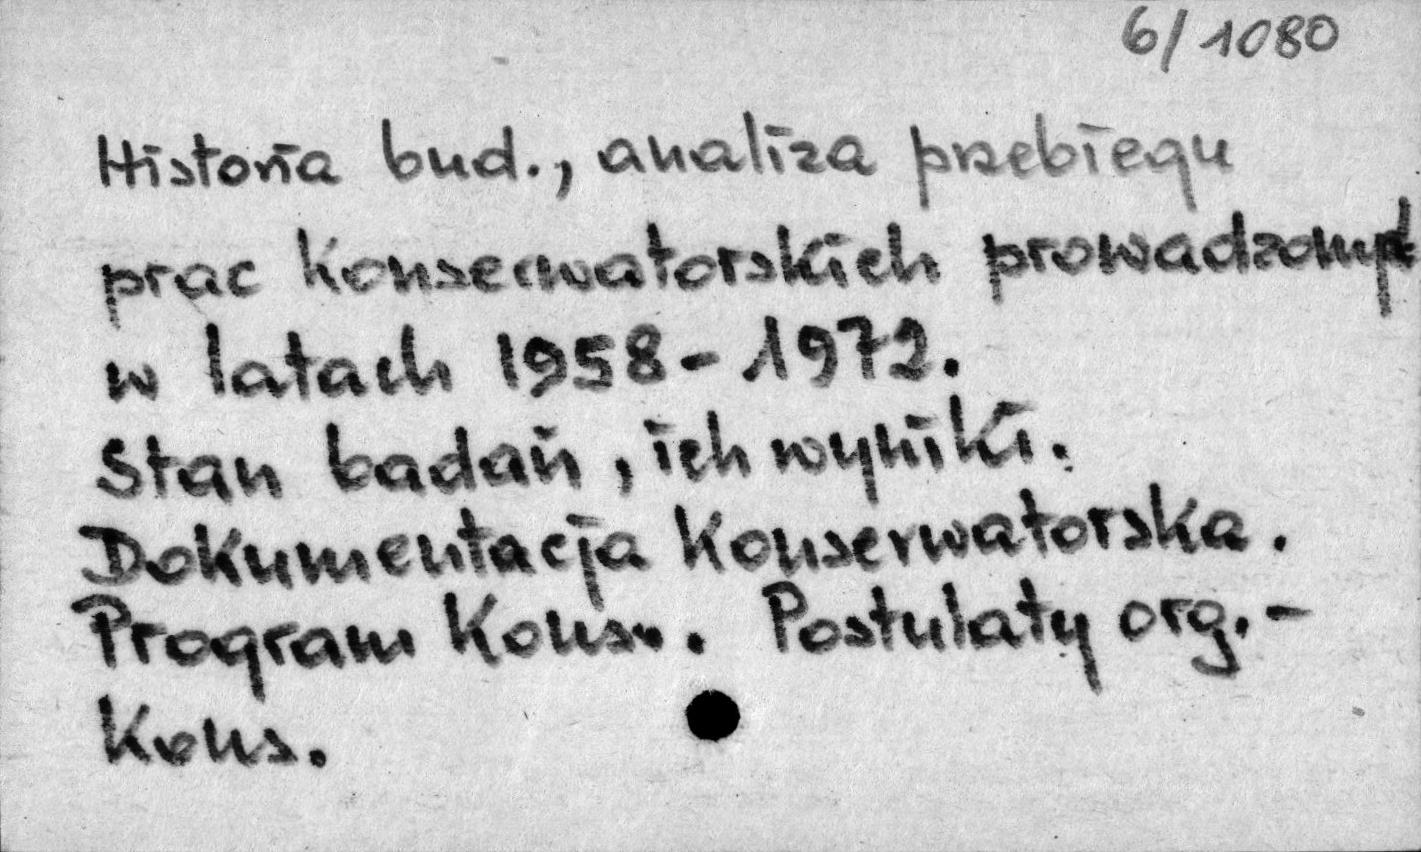 6/1080
Historia bud., analiza przebiegu
prac konserwatorskich prowadzonych
w latach 1958-1972.
Stan badań, ich wyniki.
Dokumentacja Konserwatorska.
Program Konsw. Postulaty org.-
Kons.